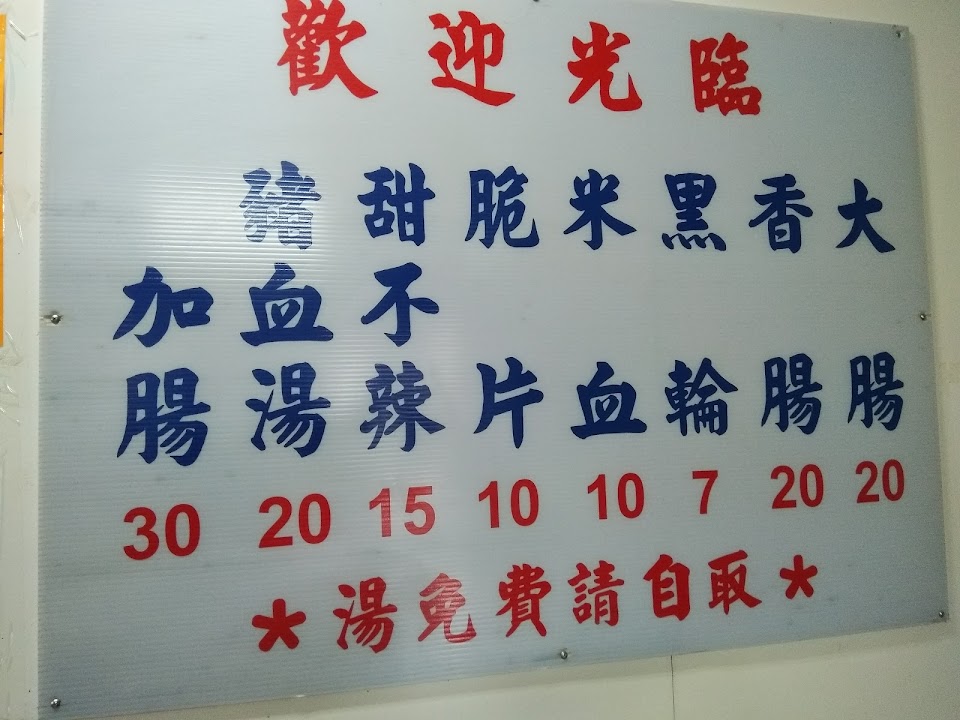 歡迎光臨
大腸 20
香腸 20
黑輪 7
米血 10
脆片 10
甜不辣 15
豬血湯 20
加腸 30
*湯免費請自取*